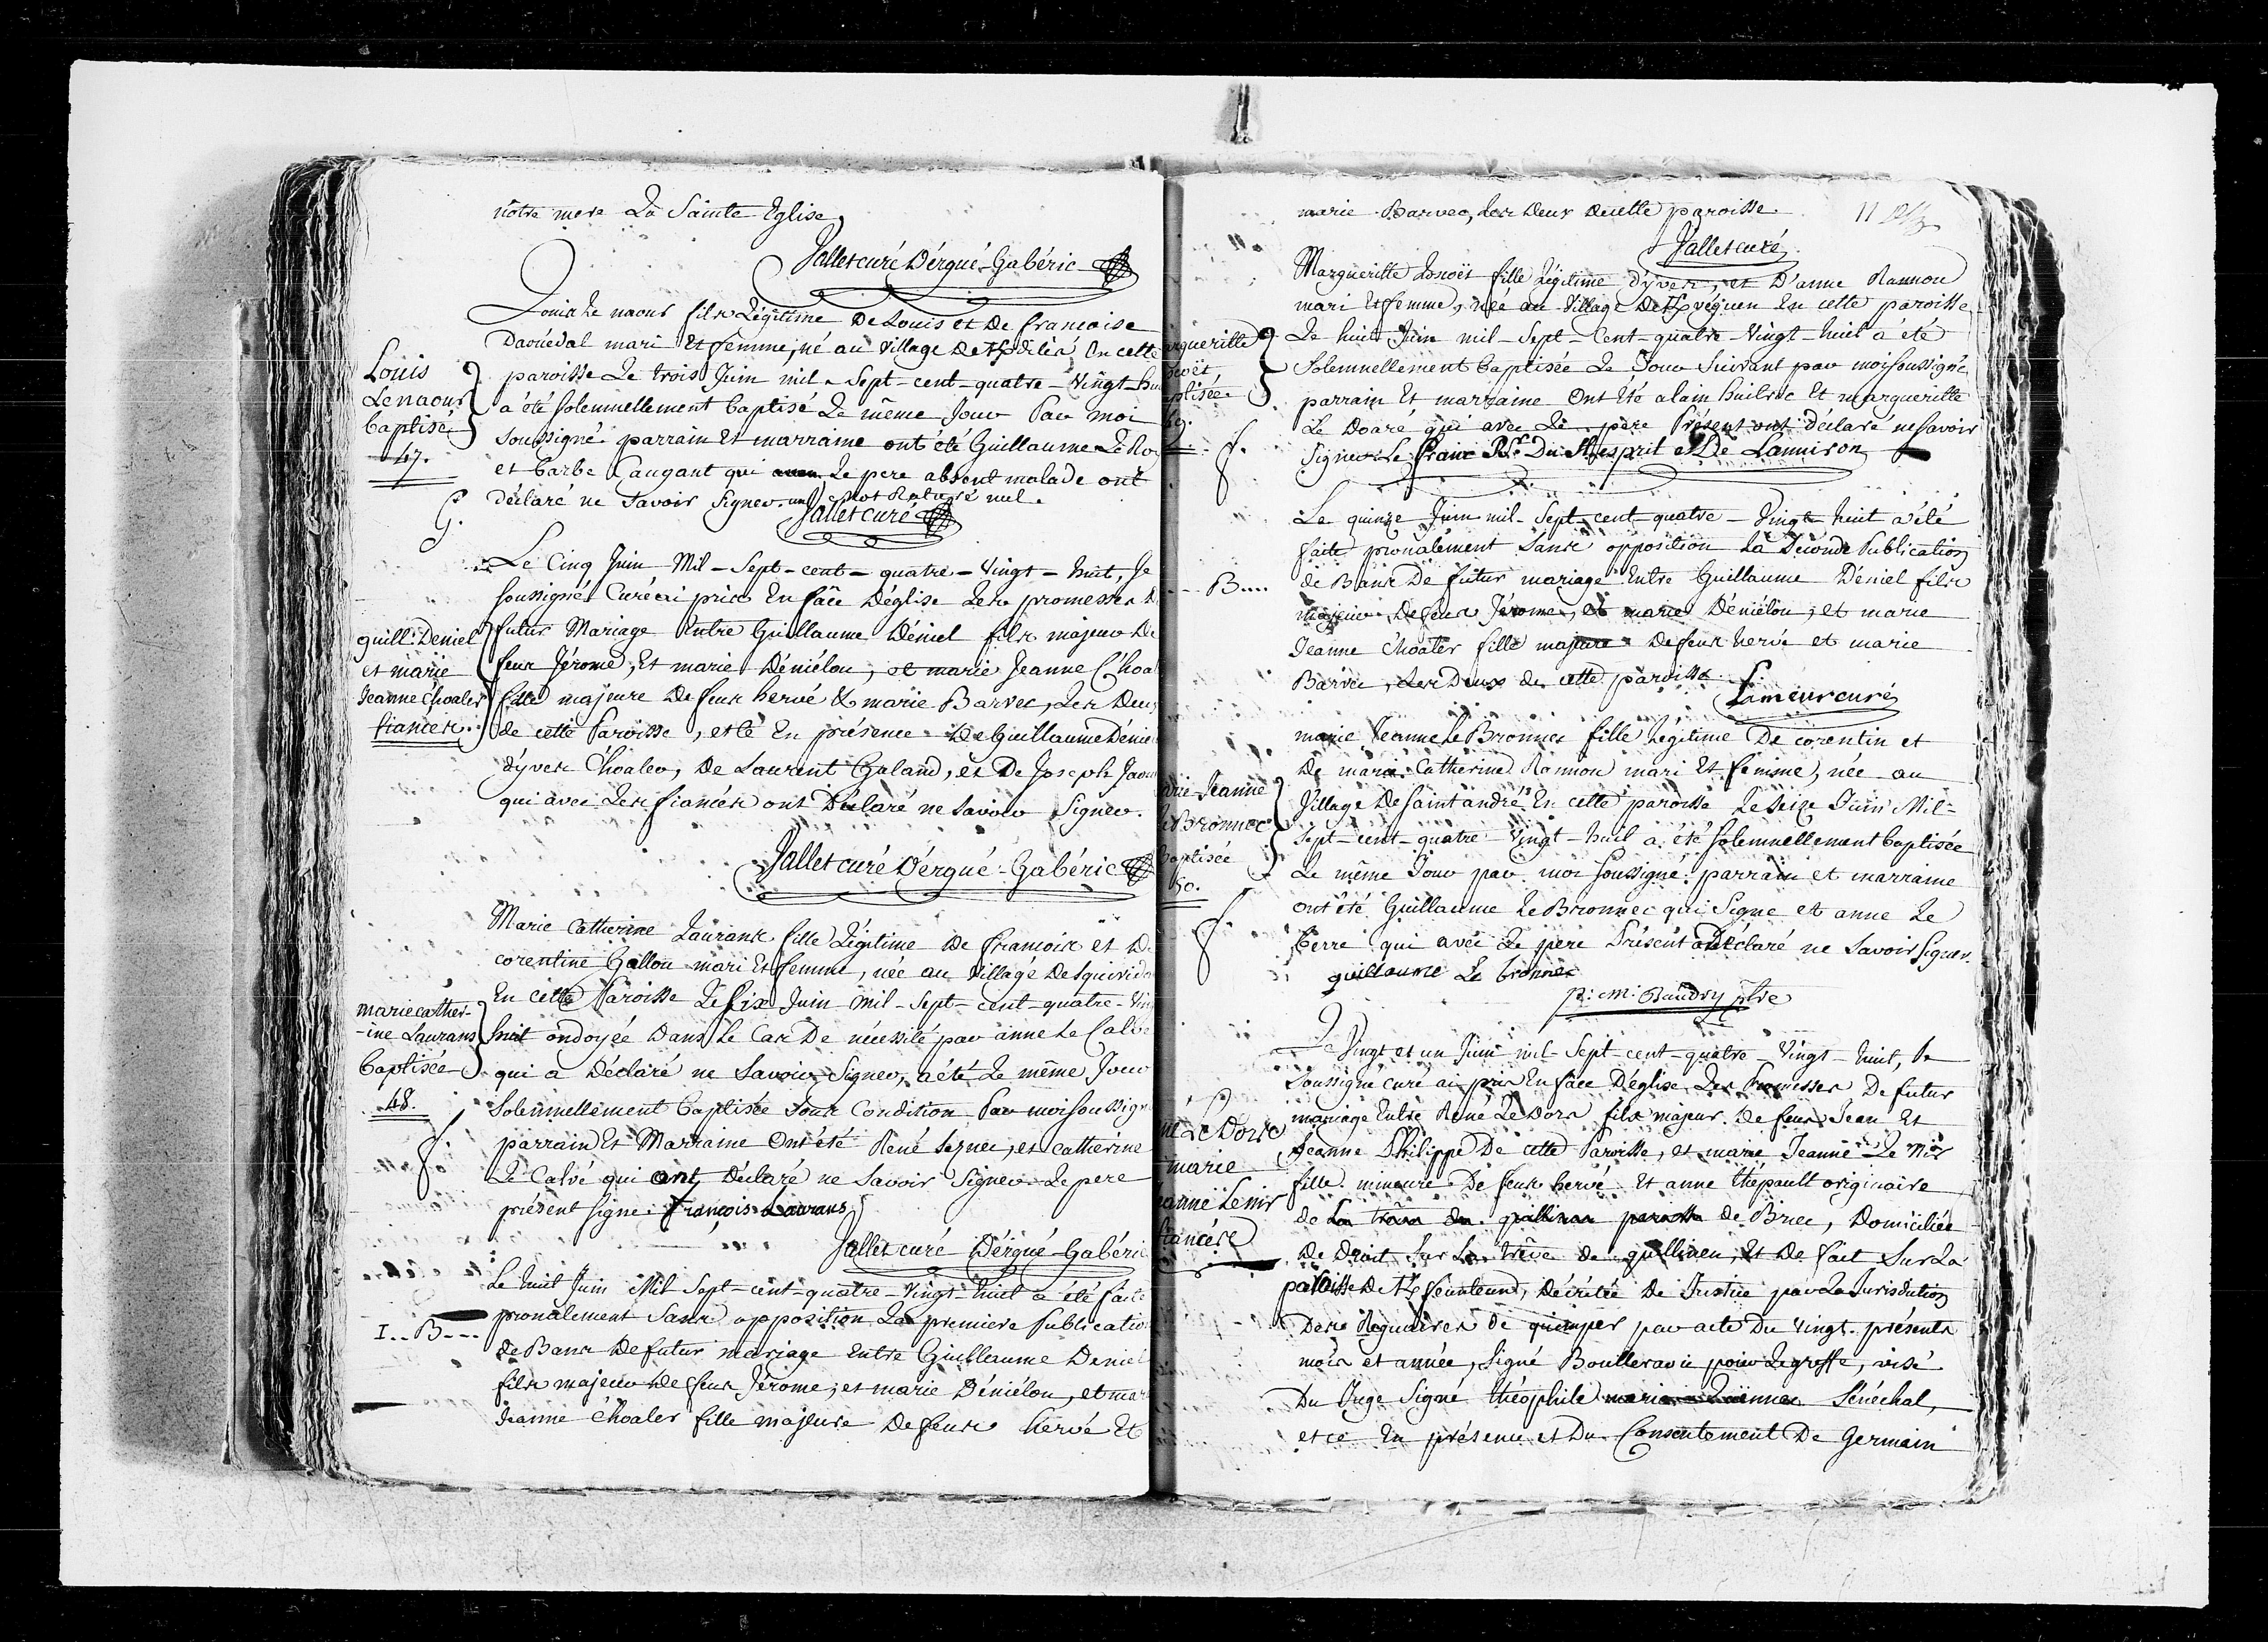 nôtre mere La Sainte Eglise,
Jallet curé D'érgué-Gabéric
Louis Le naour fils Légitime De Louis et De francoise
Daouédal mari Et femme, né au Village De En cette
paroisse Le trois Juin mil-Sept-cent-quatre-Vingt-hu
a été solemnellement baptisé Le même Jour Par moi
soussigné. parrain Et marraine ont été Guillaume Le Ro
et barbe Caugant qui avec Le pere absent malade ont
déclaré ne Savoir Signer. un mot Raturé nul.
Jallet curé
Louis
Le naour
baptisé
47.
G.
Le Cinq Juin Mil-Sept-cent-quatre-Vingt-huit, Je
soussigné Curé ai pris En face D'église Les promesses D
futur Mariage Entre Guillaume Déniel fils majeur De
feus Jérome, Et marie Déniélou, et marie Jeanne C'hoal
fille majeure De feus hervé & marie Barvec, Les Deux
de cette Paroisse, et ce En présence De Guillaume Déniel
d'yves C'hoaler, De Laurent Galand, et De Joseph Jaou
qui avec Les fiancés ont Déclaré ne Savoir Signer.
Jallet curé D'érgué-Gabéric
guill: Deniel
et marie
Jeanne C'hoaler
fiancés.
Marie Catherine Laurans fille Légitime De francois et De
corentine Gallou mari Et femme, née au Village De Squivida
En cette Paroisse Le six Juin mil-Sept-cent-quatre-Vin
huit ondoyée Dans Le Cas De nécessité par anne Le Calve
qui a Déclaré ne Savoir Signer, a été Le même Jour
Solennellement baptisée sous Condition Par moi soussigné
parrain Et Marraine Ont été René et catherine
Le Calvé qui ont Déclaré ne Savoir Signer. Le pere
présent signe. francois Laurans
Jallet curé D'érgué-Gabéric
marie cather-
-ine Laurans
baptisée
48.
f.
Le huit Juin Mil Sept-cent-quatre-Vingt-huit a été faite
pronalement Sans opposition La premiere Publication
de Bans De futur mariage Entre Guillaume Deniel
fils majeur De feus Jérome, et marie Déniélou, et mar
Jeanne C'hoaler fille majeure De feus hervé Et
I..B...
marie Barvec, Les Deux De cette paroisse
11
Jallet curé
Margueritte fille Légitime D'yves, et D'anne Rannou
mari Et femme, née au Village De En cette paroisse
Le huit Juin mil-Sept-Cent-quatre-Vingt-huit a été
Solemnellement baptisée Le Jour Suivant par moi soussigné,
parrain Et marraine Ont Été alain et margueritte
Le Doaré qui avec Le pere Présent ont déclaré ne Savoir
Signer. Le franc Du St esprit et De Lanniron
argueritte
ptisée
f.
Le quinze Juin mil-Sept-cent-quatre-Vingt huit a été
faite pronalement Sans opposition La Seconde Publication
de Bans De futur mariage Entre Guillaume Déniel fils
majeur De feus Jérome, et marie Déniélou, et marie
Jeanne C'hoaler fille majeure De feus hervé et marie
Barvec, Les Deux de cette paroisse.
Lameur curé
B....
marie Jeanne Le Bronnec fille Légitime De corentin et
De marie Catherine Rannou mari Et femme, née au
Village De Saint andré En cette paroisse Le Seize Juin Mil-
Sept-cent-quatre-Vingt-huit a été solemnellement baptisée
Le même Jour par moi soussigné. parrain et marraine
ont été Guillaume Le Bronnec qui Signe et anne Le
berre qui avec Le pere Présent a Déclaré ne Savoir Signer.
guillaume Le bronnec
p: m: Baudry ptre
rie Jeanne
e Bronnec
baptisée
50.
f.
Le Vingt et un Juin mil-Sept-cent-quatre-Vingt-huit, Je
Soussigné curé ai pris En face D'église Les Promesses De futur
mariage Entre René Le Dors fils majeur De feus Jean Et
Jeanne Philippe De cette Paroisse, et marie Jeanne Le Nir
fille mineure De feus hervé Et anne thépault originaire
de Briec, Domiciliée
De Droit Sur La trêve de quillinen, Et De fait Sur La
paroisse De Décrétée De Justice par La Jurisdiction
Des Réguaires De quimper par acte Du Vingt présents
mois et année, Signé pour Le greffe, visé
Du Juge Signé théophile Sénéchal,
et ce En présence et Du Consentement De Germain
né Le Dors
marie
anne Le nir
fiancés